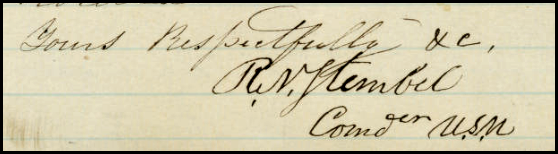 Yours Respectfully &c,
R. N. Stembel
Comder U.S.N